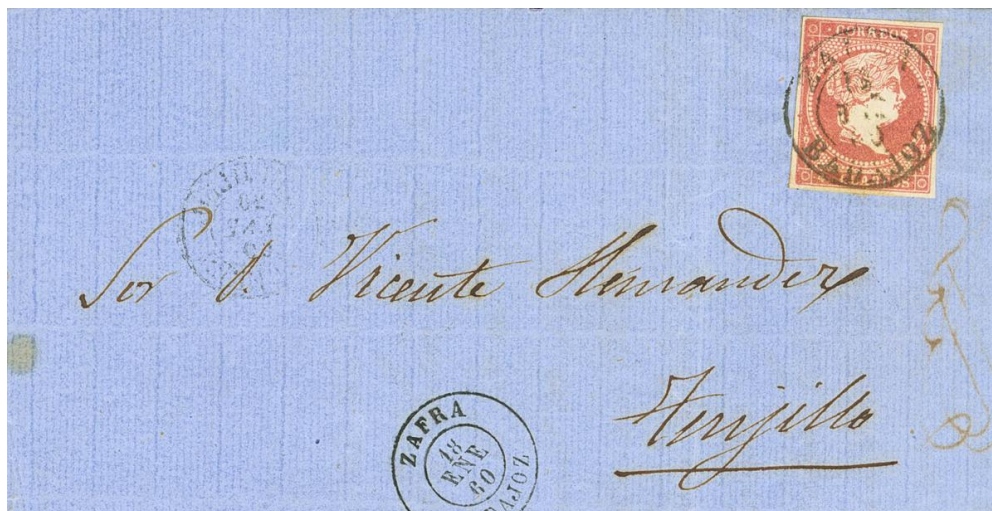 CORREOS
ZAFRA
BADAJOZ
Sor D. Vicente Hernandez
Trujillo
ZAFRA
18
ENE
60
DAJOZ